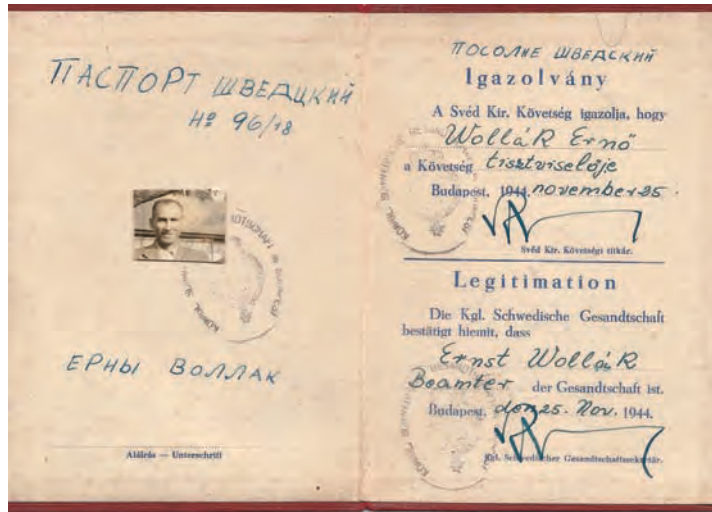 ПАСПОРТ ШВЕДЦКИЙ
№ 96/18
ЕРНЫ ВОЛЛАК
Aláirás — Unterschrift
ПОСОЛНЕ ШВЕДСКИЙ
Igazolvány
A Svéd Kir. Követség igazolja, hogy
Wollák Ernő
a Követség tisztviselője
Budapest, 1944. november 25.
Svéd Kir. Követségi titkár.
Legitimation
Die Kgl. Schwedische Gesandtschaft
bestätigt hiemit, dass
Ernst Wollák
Beamter der Gesandtschaft ist.
Budapest, den 25. Nov. 1944.
Kgl. Schwedischer Gesandtschaftssekretär.